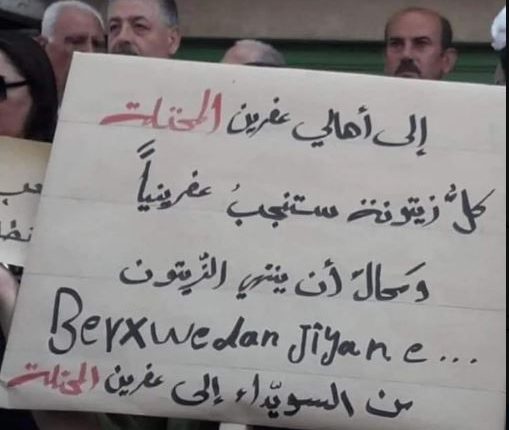 إلى أهالي عفرين المحتلة
كلُّ زيتونة ستنجبُ عفرينياً
ومحالٌ أن ينتهي الزّيتون
Berxwedan Jîyane...
من السويداء إلى عفرين المحتلة